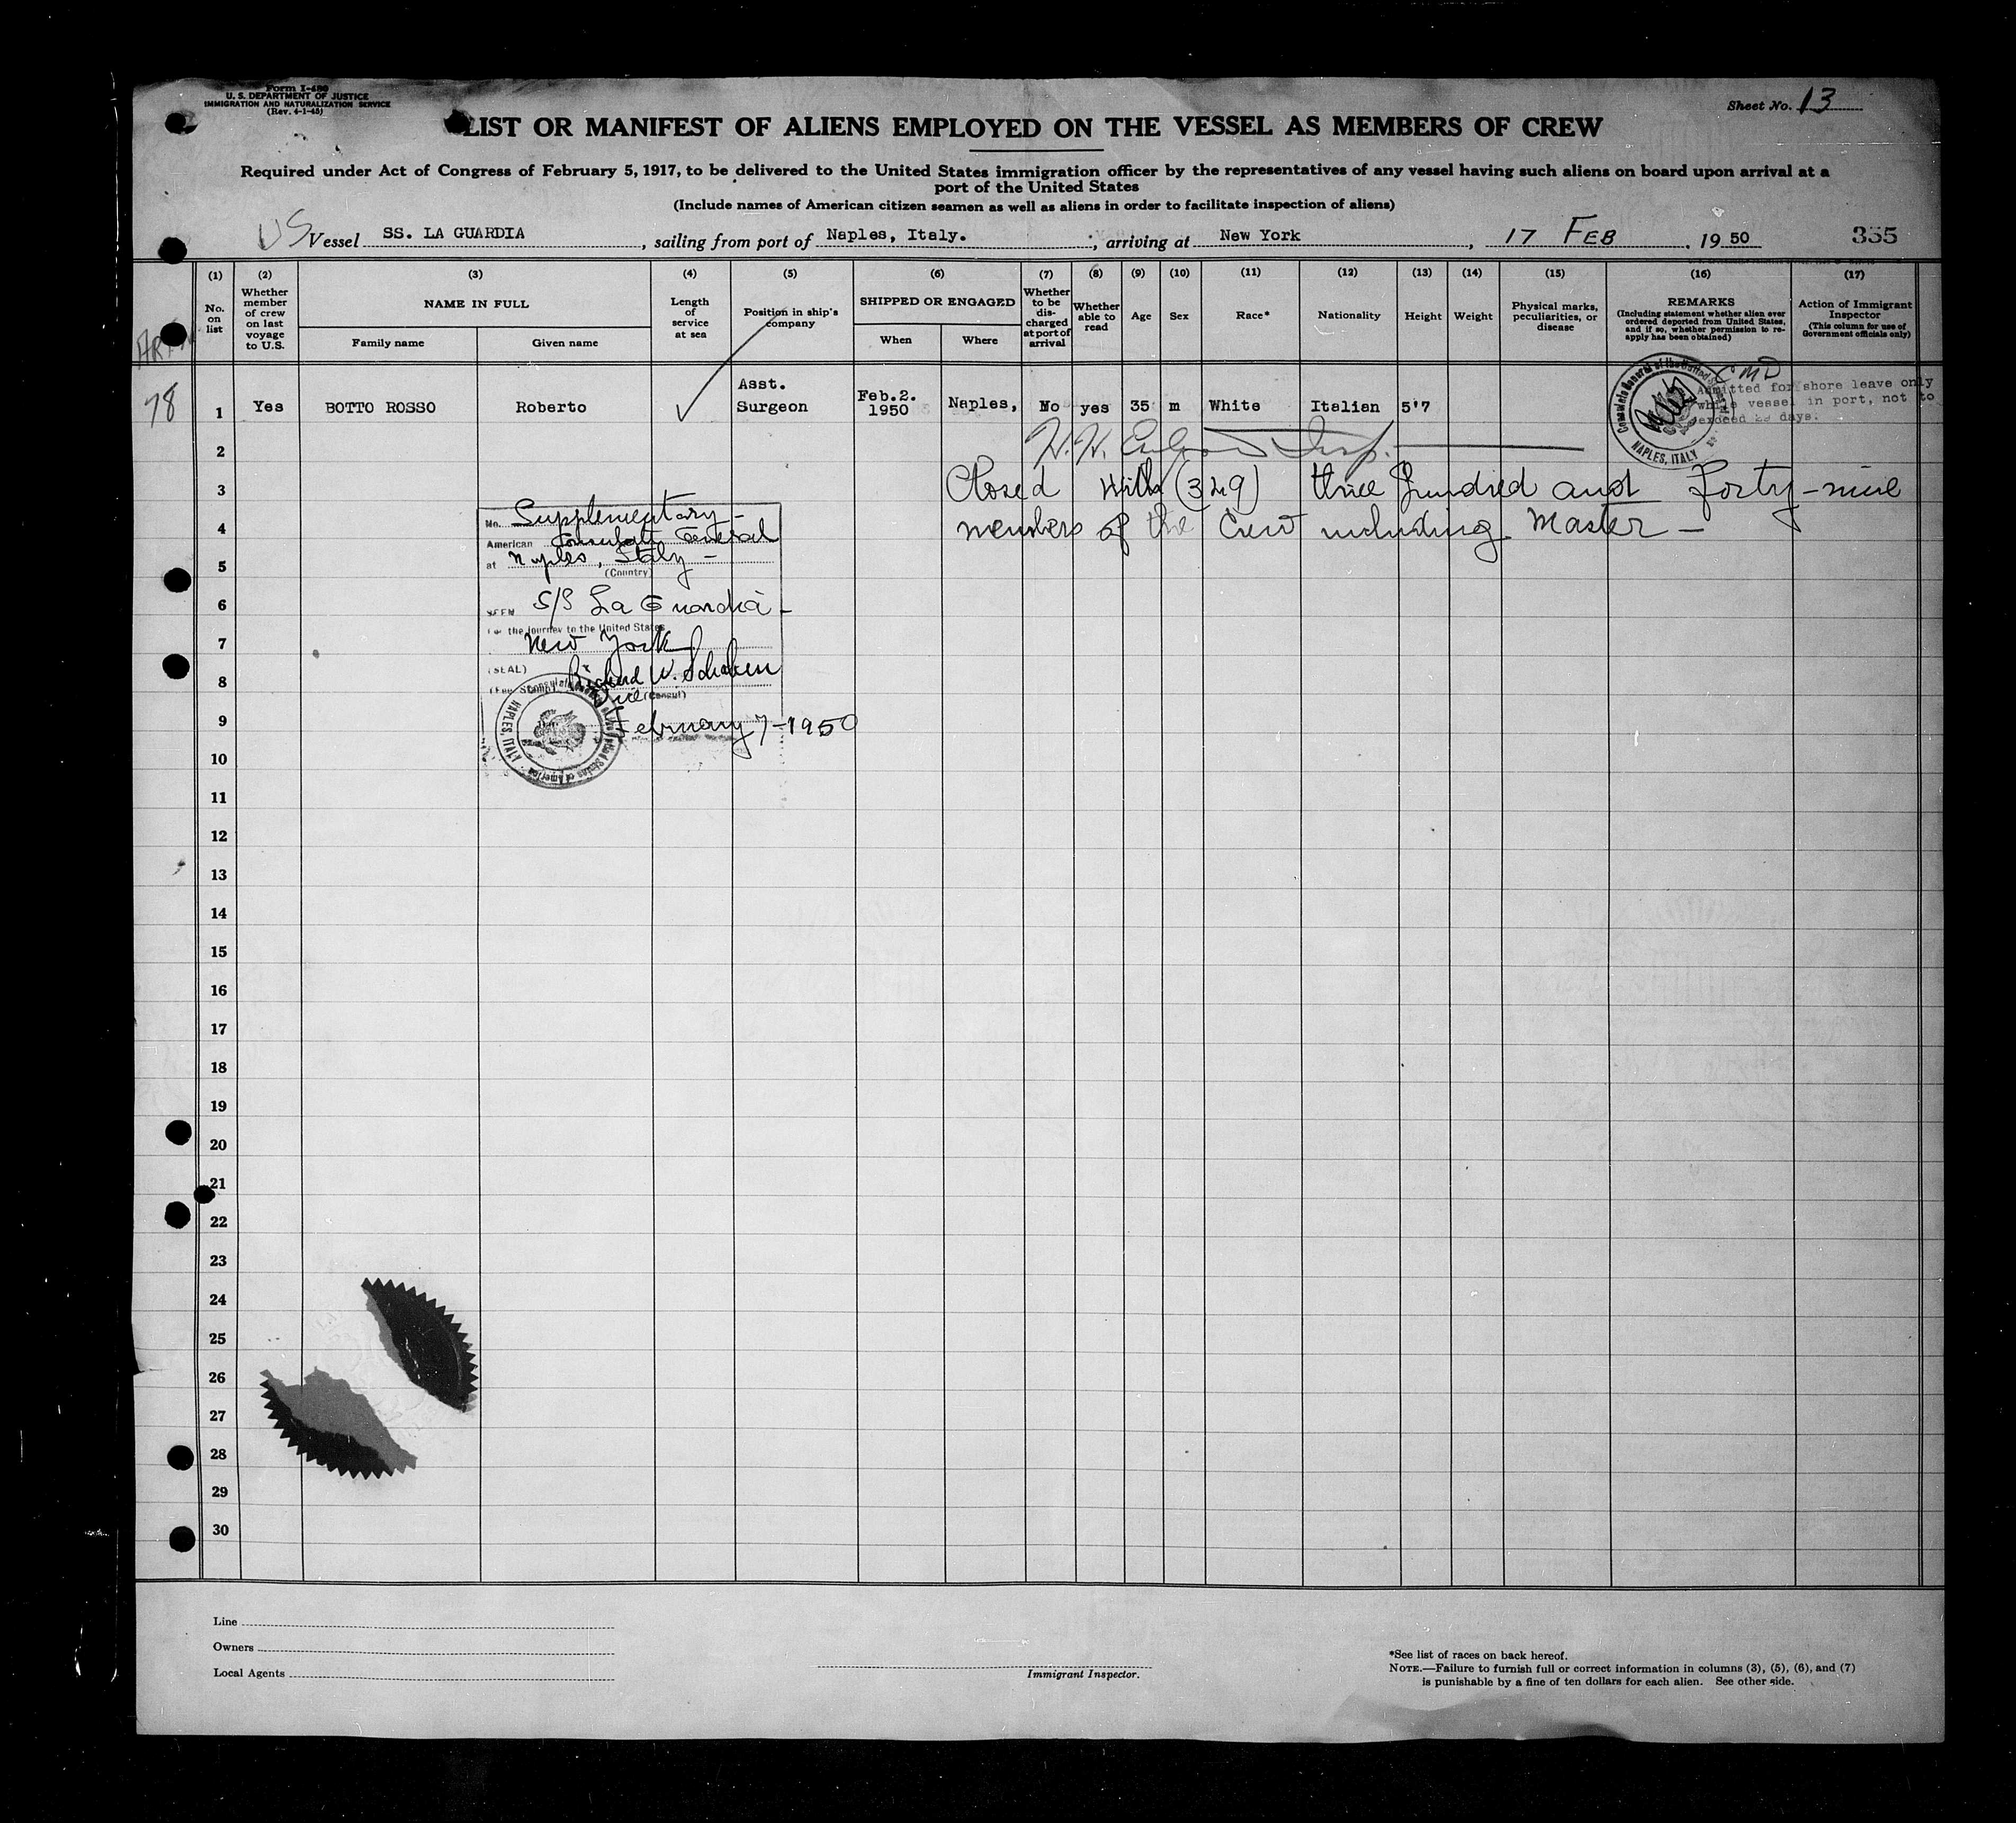 Form I-480
U. S. DEPARTMENT OF JUSTICE
IMMIGRATION AND NATURALIZATION SERVICE
(Rev. 4-1-45)
Sheet No. 13
LIST OR MANIFEST OF ALIENS EMPLOYED ON THE VESSEL AS MEMBERS OF CREW
Required under Act of Congress of February 5, 1917, to be delivered to the United States immigration officer by the representatives of any vessel having such aliens on board upon arrival at a
port of the United States
(Include names of American citizen seamen as well as aliens in order to facilitate inspection of aliens)
US Vessel SS. LA GUARDIA, sailing from port of Naples, Italy., arriving at New York, 17 FEB, 19 50 355
(1) (2) (3) (4) (5) (6) (7) (8) (9) (10) (11) (12) (13) (14) (15) (16) (17)
No. on list
Whether member of crew on last voyage to U.S.
NAME IN FULL
Family name
Given name
Length of service at sea
Position in ship's company
SHIPPED OR ENGAGED
When
Where
Whether to be discharged at port of arrival
Whether able to read
Age
Sex
Race*
Nationality
Height
Weight
Physical marks, peculiarities, or disease
REMARKS
(Including statement whether alien ever ordered deported from United States, and if so, whether permission to re-apply has been obtained)
Action of Immigrant Inspector
(This column for use of Government officials only)
78
1 Yes BOTTO ROSSO Roberto Asst. Surgeon Feb.2. 1950 Naples, No yes 35 m White Italian 5'7
CMD
Admitted for shore leave only
while vessel in port, not to
exceed 29 days.
Consulate General of the United States
NAPLES, ITALY
2
3 Closed With (349) three hundred and Forty-nine
4 members of the Crew including Master -
No. Supplementary -
American Consulate General
at Naples, Italy -
(Country)
5
6
SEEN S/S La Guardia -
For the journey to the United States
7
New York
(SEAL) Richard W.
8
(Fee Stamp) Vice (Consul)
9
February 7-1950
Consulate General of the United States of America
NAPLES, ITALY
10
11
12
13
14
15
16
17
18
19
20
21
22
23
24
25
26
27
28
29
30
Line
Owners
Local Agents
Immigrant Inspector.
*See list of races on back hereof.
NOTE.—Failure to furnish full or correct information in columns (3), (5), (6), and (7)
is punishable by a fine of ten dollars for each alien. See other side.